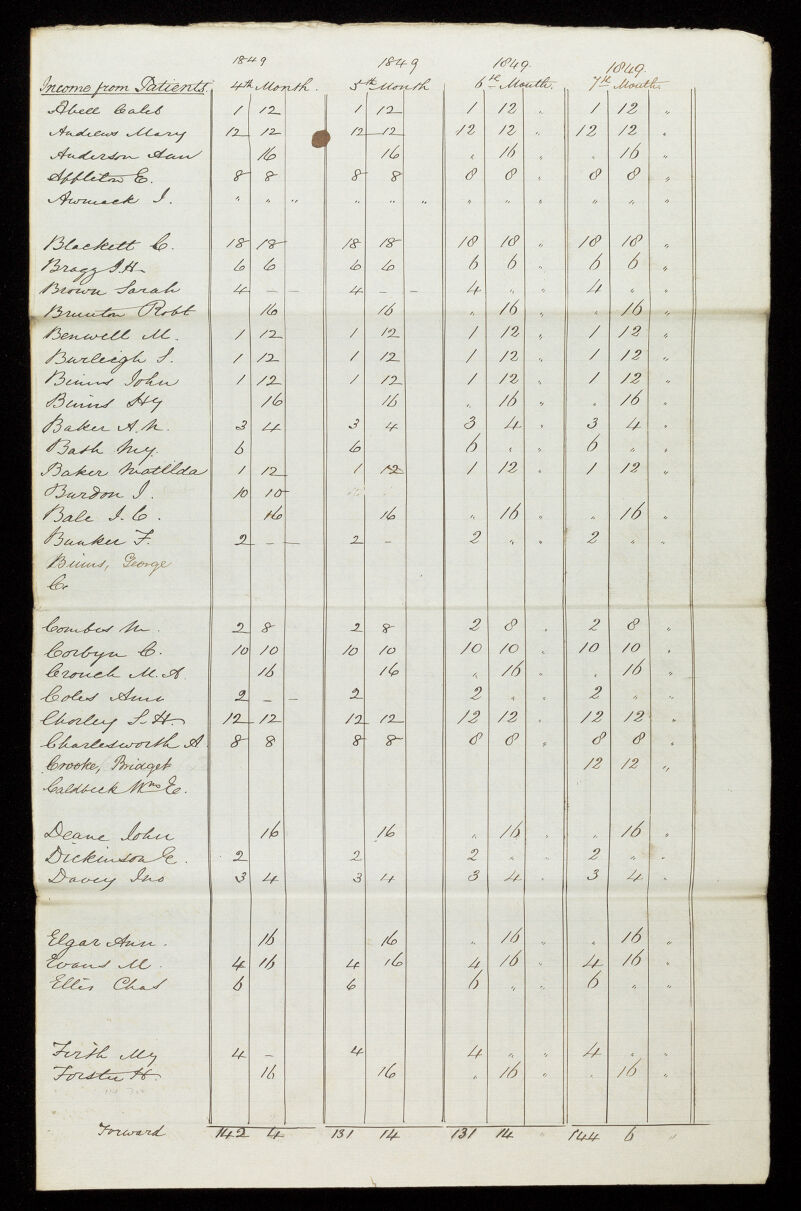 1849 1849 1849 1849
Income from Patients. 4th Month. 5th Month 6th Month. 7th Month.
Abell Caleb 1 12 1 12 1 12 " 1 12 "
Andrews Mary 12 12 12 12 12 12 " 12 12 "
Anderson Ann 16 16 " 16 " " 16 "
Appleton E. 8 8 8 8 8 8 " 8 8 "
Awmack J. " " " " " " " " " " " "
Blackett C. 18 18 18 18 18 18 " 18 18 "
Bragg J.H. 6 6 6 6 6 6 " 6 6 "
Brown Sarah 4 – – 4 – – 4 " " 4 " "
Brunton Robt 16 16 " 16 " " 16 "
Benwell M. 1 12 1 12 1 12 " 1 12 "
Burleigh S. 1 12 1 12 1 12 " 1 12 "
Binns John 1 12 1 12 1 12 " 1 12 "
Binns Hy 16 16 " 16 " " 16 "
Baker A.M. 3 4 3 4 3 4 " 3 4 "
Bath My. 6 6 6 " " 6 " "
Baker Matilda 1 12 1 12 1 12 " 1 12 "
Burdon J. 10 10
Bale J. C. 16 16 " 16 " " 16 "
Bunker F. 2 – – 2 – 2 " " 2 " "
Binns, George
Cr
Combes M. 2 8 2 8 2 8 " 2 8 "
Corbyn C. 10 10 10 10 10 10 " 10 10 "
Crouch M.A. 16 16 " 16 " " 16 "
Coles Ann 2 – – 2 2 " " 2 " "
Chorley S.H. 12 12 12 12 12 12 " 12 12 "
Charlesworth A 8 8 8 8 8 8 " 8 8 "
Crooke, Bridget 12 12 "
Caldbeck Wm E.
Deane John 16 16 " 16 " " 16 "
Dickinson E. 2 2 2 " " 2 " "
Davey Jno 3 4 3 4 3 4 " 3 4 "
Elgar Ann. 16 16 " 16 " " 16 "
Evans M. 4 16 4 16 4 16 " 4 16 "
Ellis Chas 6 6 6 " " 6 " "
Firth My 4 – 4 4 " " 4 " "
Forster H. 16 16 " 16 " " 16 "
Forward 142 4 131 14 131 14 " 144 6 "